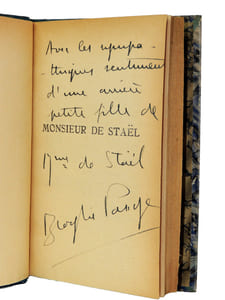 Avec les sympa-
thiques sentiments
d'une arrière
petite fille de
MONSIEUR DE STAËL
Mme de Staël
Broglie Pange